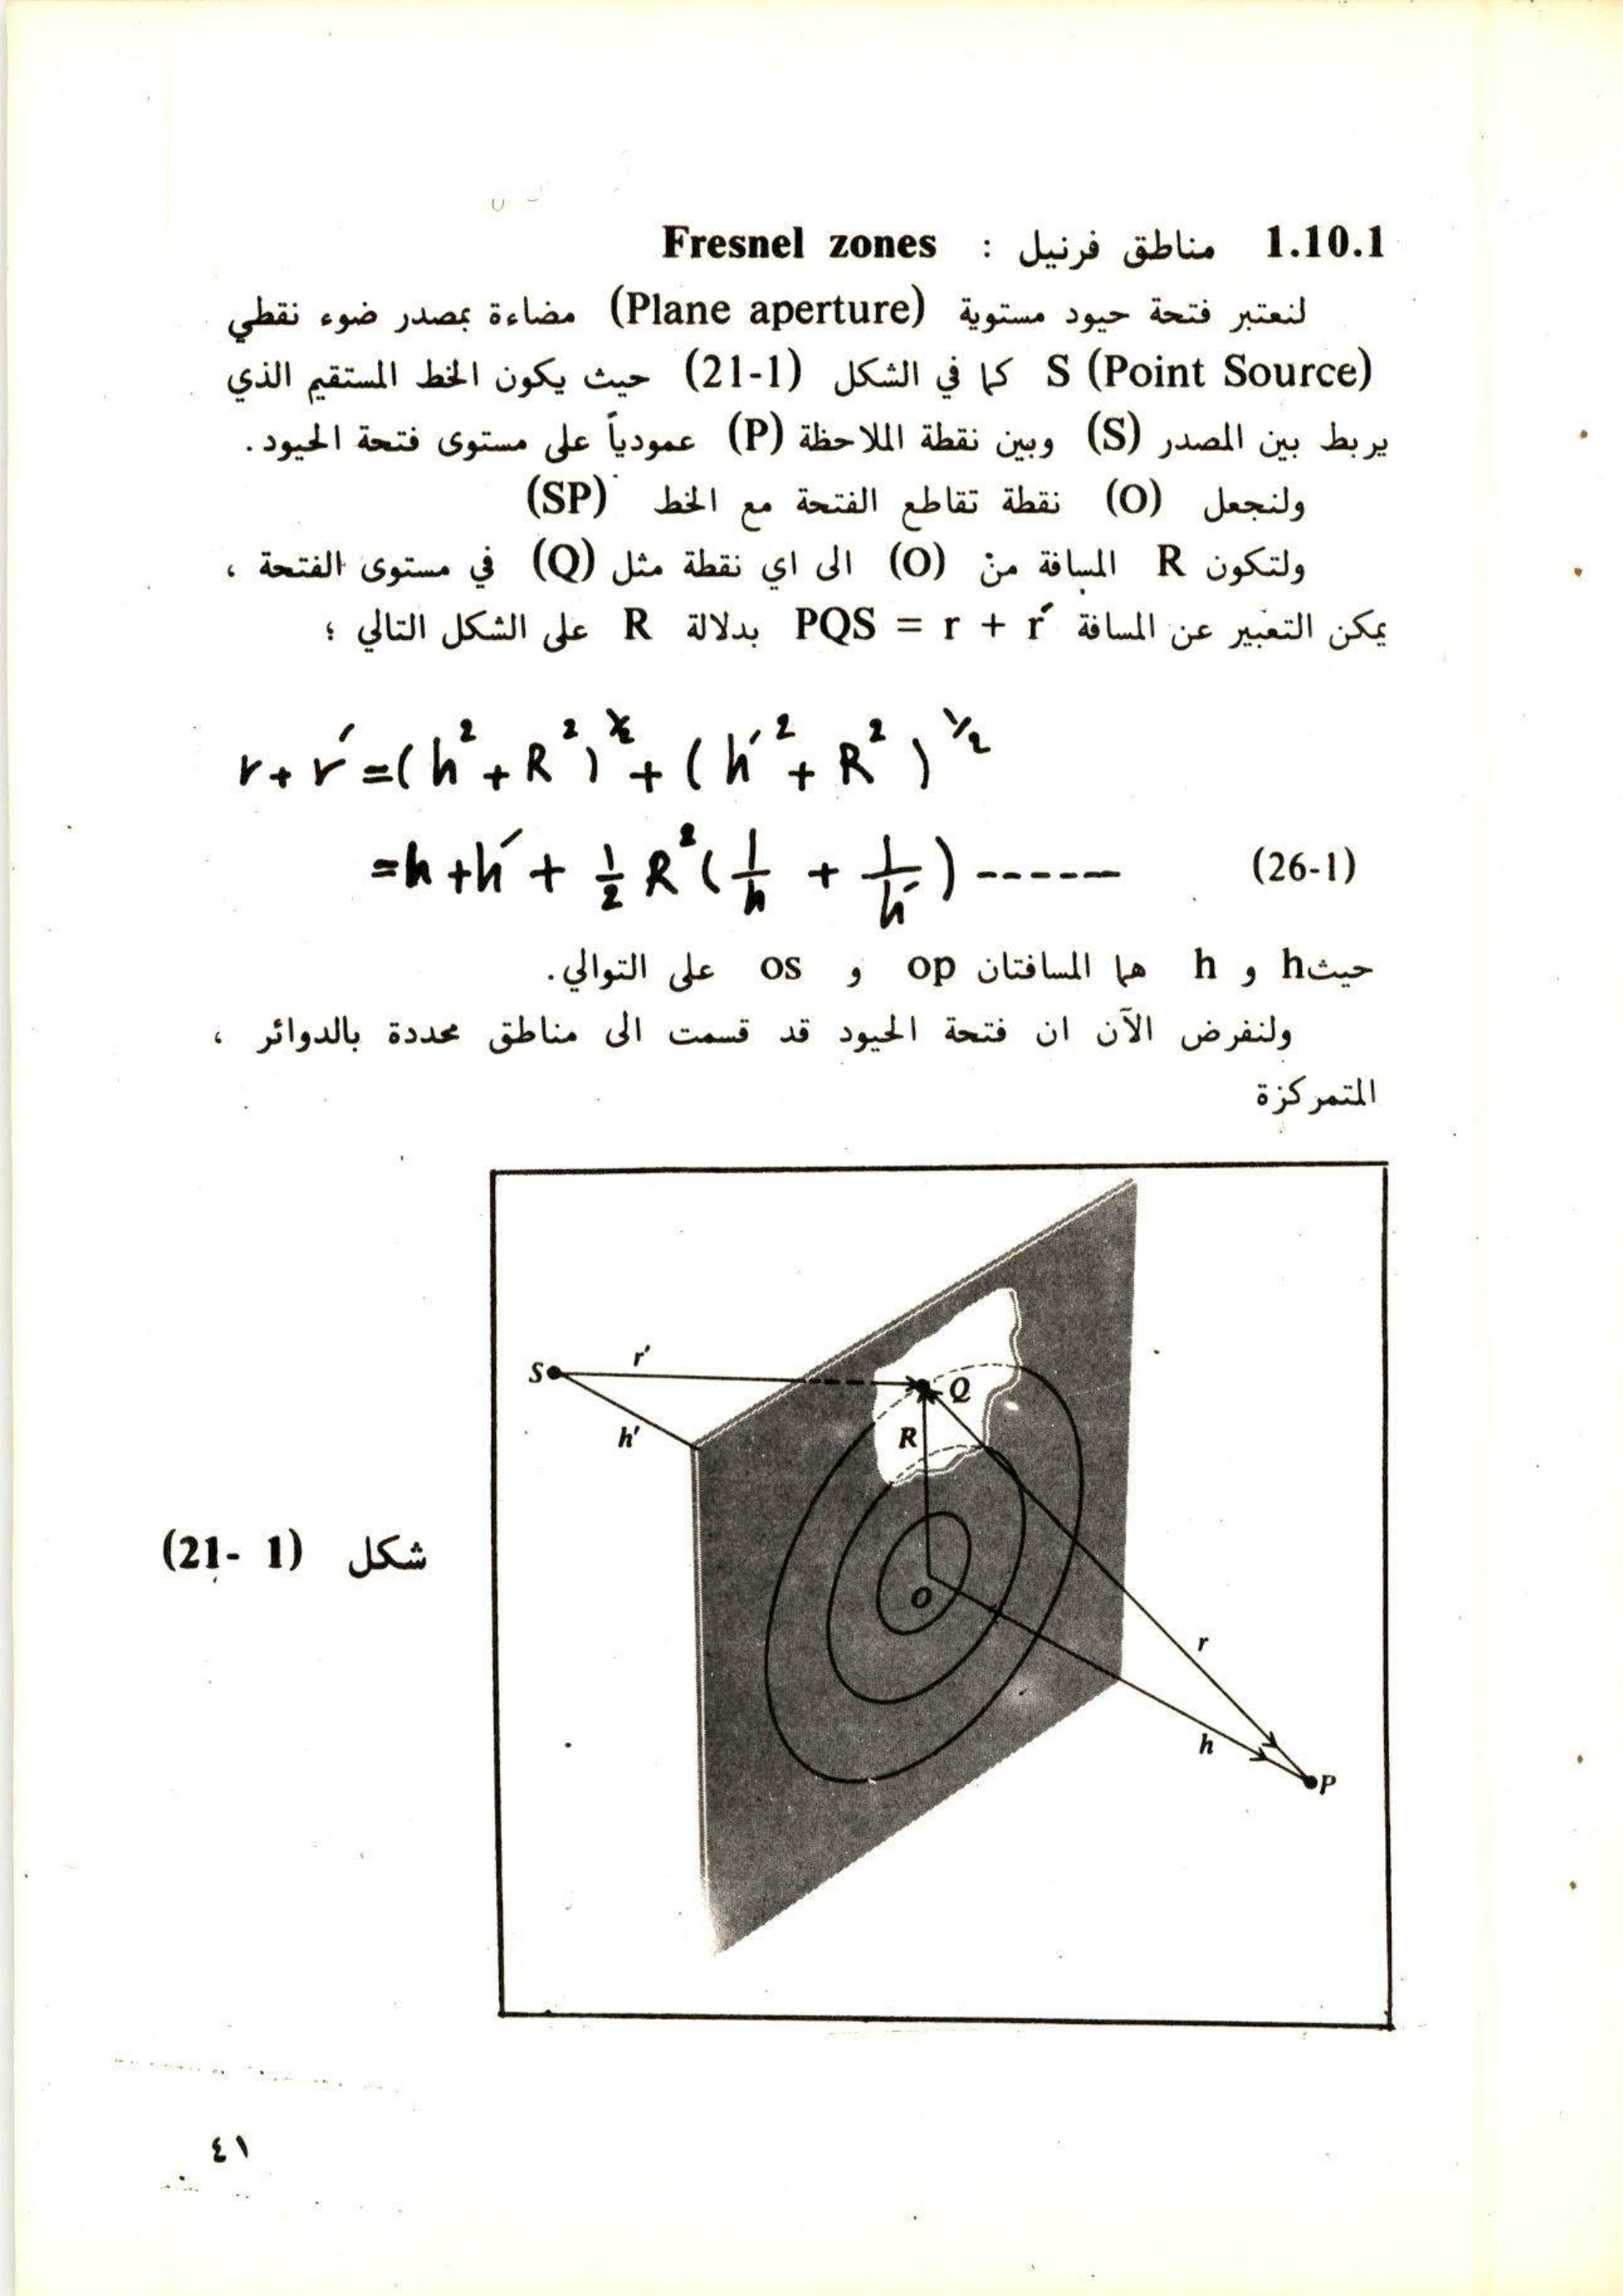 1.10.1 مناطق فرنيل : Fresnel zones
لنعتبر فتحة حيود مستوية (Plane aperture) مضاءة بمصدر ضوء نقطي
S (Point Source) كما في الشكل (21-1) حيث يكون الخط المستقيم الذي
يربط بين المصدر (S) وبين نقطة الملاحظة (P) عمودياً على مستوى فتحة الحيود.
ولنجعل (O) نقطة تقاطع الفتحة مع الخط (SP)
ولتكون R المسافة من (O) الى اي نقطة مثل (Q) في مستوى الفتحة ،
يمكن التعبير عن المسافة PQS = r + r′ بدلالة R على الشكل التالي ؛
r + r′ = (h² + R²)^½ + (h′² + R²)^½
= h + h′ + ½ R² (1/h + 1/h′) ------ (26-1)
حيث h و h هما المسافتان op و os على التوالي.
ولنفرض الآن ان فتحة الحيود قد قسمت الى مناطق محددة بالدوائر ،
المتمركزة
S
r′
h′
Q
R
O
r
h
P
شكل (21- 1)
٤١